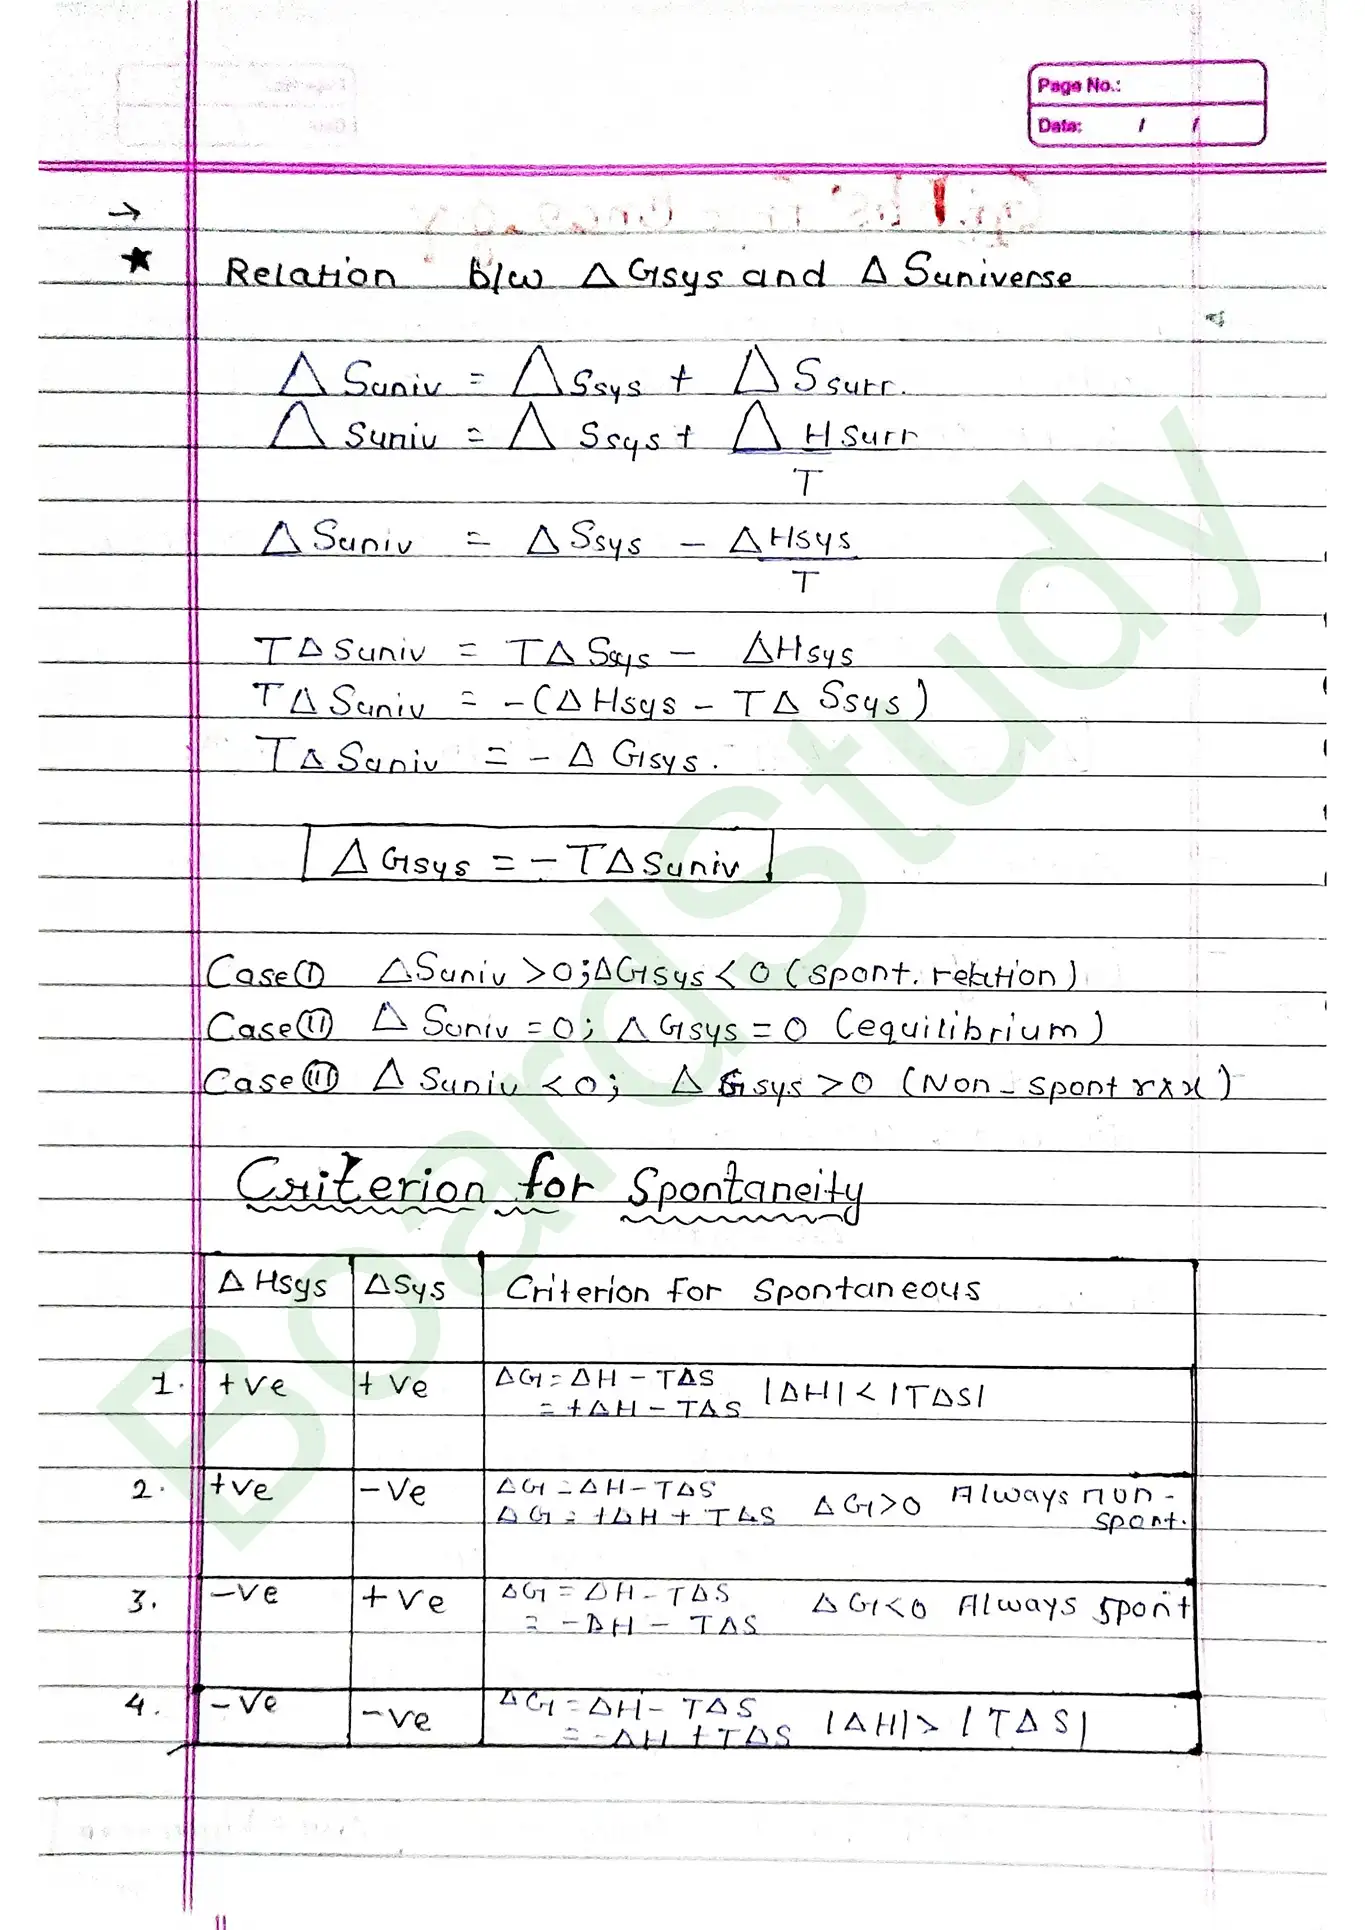 Page No.:
Date: / /
→
★ Relation b/w △ Gsys and △ Suniverse
△ Suniv = △ Ssys + △ Ssurr.
△ Suniv = △ Ssys + △ Hsurr
T
△ Suniv = △ Ssys − △Hsys
T
T△ Suniv = T△ Ssys − △Hsys
T△ Suniv = −(△Hsys − T△ Ssys)
T△ Suniv = − △ Gsys.
△ Gsys = − T△Suniv
Case(I) △Suniv >0;△Gsys< 0 (spont. reLation)
Case(II) △ Suniv = 0; △ Gsys = 0 (equilibrium)
Case(III) △ Suniv <0; △ Gsys >0 (Non - spont rxx)
Criterion for Spontaneity
△ Hsys △Sys Criterion for Spontaneous
1. +ve +ve △G = △H − T△S |△H| < |T△S|
= +△H − T△S
2. +ve −ve △G = △H − T△S △G>0 Always non -
△G = +△H + T△S spont.
3. −ve +ve △G = △H − T△S △G<0 Always spont
= −△H − T△S
4. −ve −ve △G = △H − T△S |△H| > |T△S|
= −△H + T△S
BoardStudy